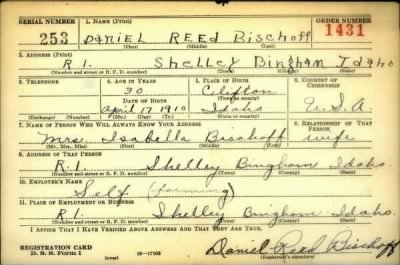 SERIAL NUMBER 1. NAME (Print) ORDER NUMBER
253 DANIEL REED BISCHOFF 1431
(First) (Middle) (Last)
2. ADDRESS (Print)
R1. Shelley Bingham Idaho
(Number and street or R. F. D. number) (Town) (County) (State)
3. TELEPHONE 4. AGE IN YEARS 5. PLACE OF BIRTH 6. COUNTRY OF CITIZENSHIP
30 Clifton
DATE OF BIRTH (Town or county)
April 17 1910 Idaho U.S.A.
(Exchange) (Number) (Mo.) (Day) (Yr.) (State or country)
7. NAME OF PERSON WHO WILL ALWAYS KNOW YOUR ADDRESS 8. RELATIONSHIP OF THAT PERSON
Mrs. Isabella Bischoff wife
(Mr., Mrs., Miss) (First) (Middle) (Last)
9. ADDRESS OF THAT PERSON
R.1. Shelley Bingham Idaho.
(Number and street or R. F. D. number) (Town) (County) (State)
10. EMPLOYER'S NAME
Self (farming)
11. PLACE OF EMPLOYMENT OR BUSINESS
R1. Shelley Bingham Idaho.
(Number and street or R. F. D. number) (Town) (County) (State)
I AFFIRM THAT I HAVE VERIFIED ABOVE ANSWERS AND THAT THEY ARE TRUE.
REGISTRATION CARD
D. S. S. Form 1 (over) 16—17105 Daniel Reed Bischoff
(Registrant's signature)